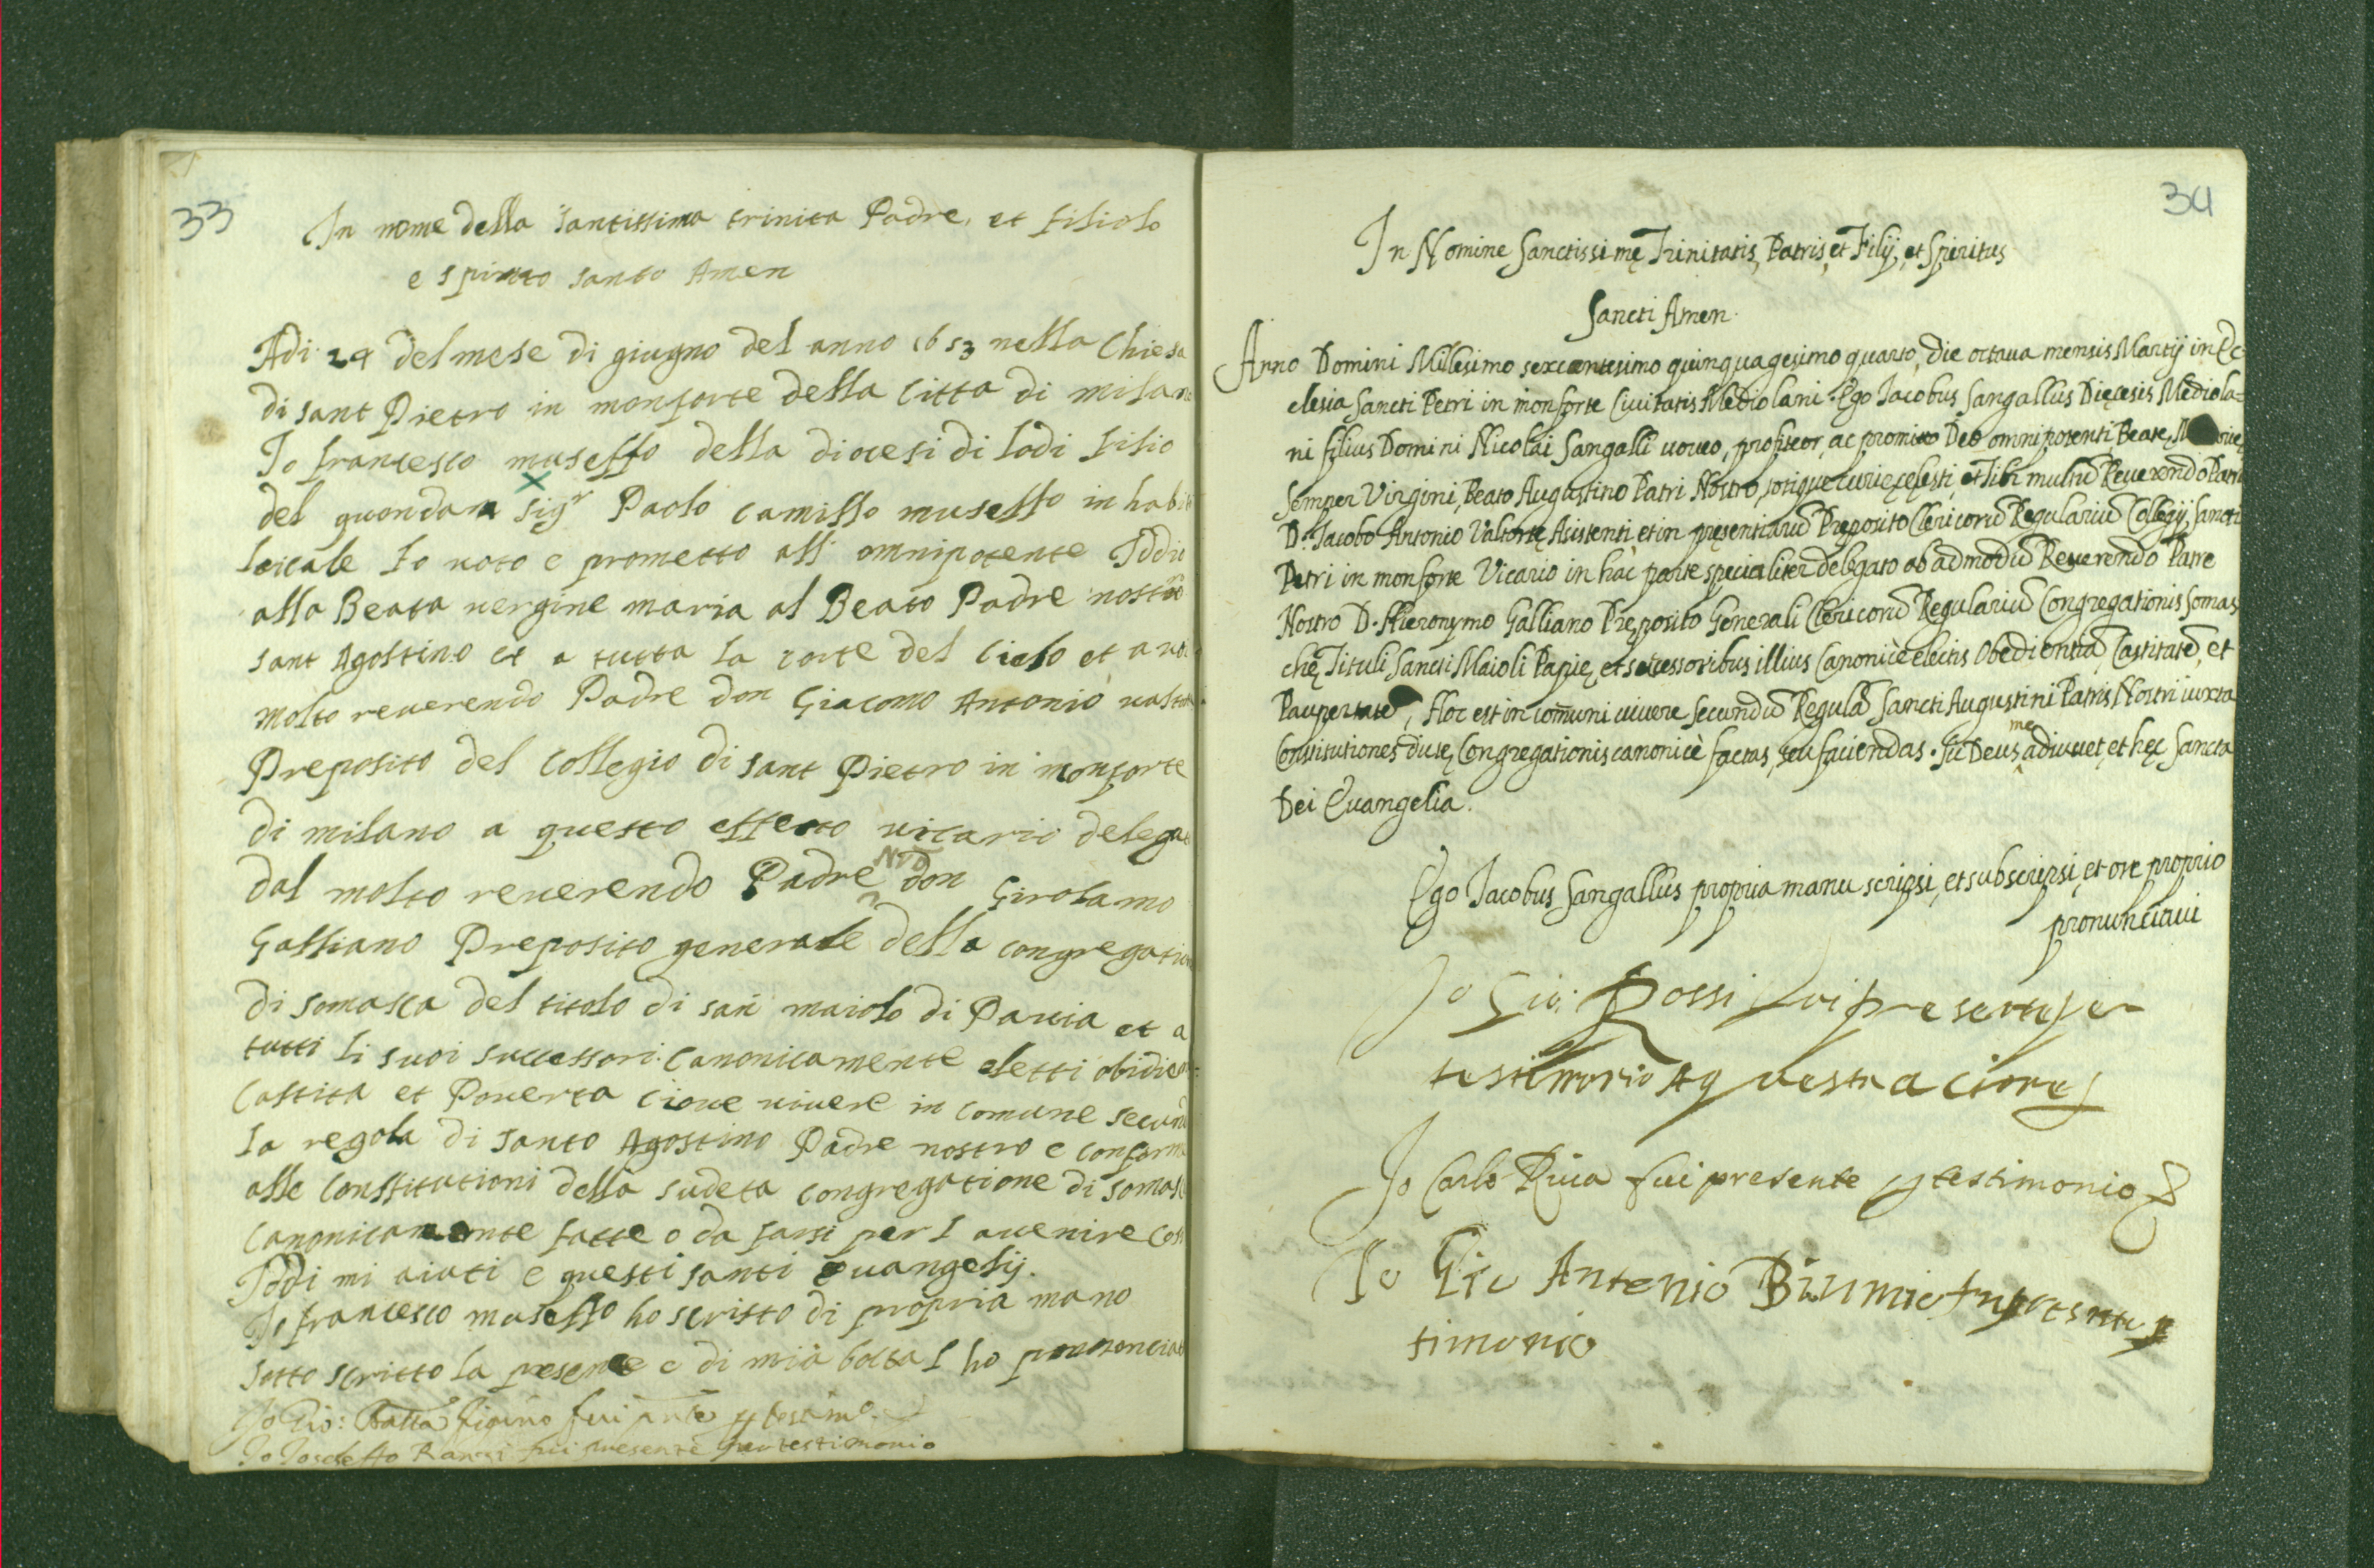 33
In nome della santissima trinita Padre, et filiolo
e spirito santo Amen
Adi 24 del mese di giugno del anno 1653 nella Chiesa
di sant Pietro in monforte della Citta di milan
Io francesco musello della diocesi di lodi filio
del quondam sigr Paolo camillo musello in habi
laicale fo voto e prometto all omnipotente Iddio
alla Beata vergine maria al Beato Padre nostro
sant Agostino et a tutta la corte del Cielo et a voi
molto reverendo Padre don Giacomo Antonio valto
Preposito del Collegio di sant Pietro in monforte
di milano a questo effetto vicario delega
dal molto reverendo Padre Nro don Girolamo
Galliano Preposito generale della congregatio
di somasca del titolo di san maiolo di Pavia et a
tutti li suoi successori canonicamente eletti obidien
Castita et Poverta cioue vivere in comune second
la regola di santo Agostino Padre nostro e conform
alle constitutioni della sudeta congregatione di somas
canonicamente fatte o da farsi per l avenire Cos
Iddi mi aiuti e questi santi Evangelij.
Io francesco musello ho scritto di propria mano
sotto scritto la presente e di mia bocca l ho prononcia
Io Gio: Batta figino fui pnte p testimo.
Io Ioseffo fui presente per testimonio
34
In Nomine Sanctissimę Trinitatis, Patris, et Filij, et Spiritus
Sancti Amen.
Anno Domini Millesimo sexcentesimo quinquagesimo quarto, Die octaua mensis Martij in Ec-
clesia Sancti Petri in monforte Ciuitatis Mediolani. Ego Iacobus Sangallus Diecesis Mediola-
ni filius Domini Nicolai Sangalli uoueo, profiteor, ac promitto Deo omnipotenti Beatę
Semper Virgini, Beato Augustino Patri Nostro, totique curię cęlesti, et Tibi multū Reuerendo Patri
D. Iacobo Antonio Valtortę Asistenti et in pręsentiarū Pręposito Clericorū Regulariū Collegij Sancti
Petri in monforte Vicario in hac parte specialiter delegato ab admodū Reuerendo Patre
Nostro D. Hieronymo Galliano Pręposito Generali Clericorū Regulariū Congregationis Somas
chę Tituli Sancti Maioli Papię, et successoribus illius Canonicè electis Obedientiā, Castitatē, et
Paupertatē, Hoc est in comuni uiuere secundū Regulā Sancti Augustini Patris Nostri iuxta
Constitutiones dictę Congregationis canonicè factas, seu faciendas. Sic Deus me adiuuet, et hęc Sancta
Dei Euangelia.
Ego Iacobus Sangallus propria manu scripsi, et subscripsi, et ore proprio
pronunciaui
Io Gio: Rossi fui presente per
testimonio
Io Carlo Riua fui presente p testimonio
Io Gio Antonio
timonio